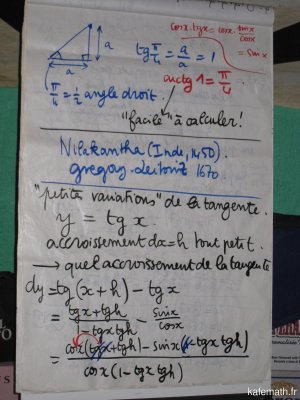 cosx tgx = cosx . sinx/cosx
= sinx
a
a
tg π/4 = a/a = 1
arctg 1 = π/4
π/4 = 1/2 angle droit.
"facile" à calculer!
Nilakantha (Inde, 1450).
gregory-Leibniz 1670
"petites variations" de la tangente.
y = tg x.
accroissement dx = h tout petit.
→ quel accroissement de la tangente
dy = tg(x + h) - tg x
= (tgx + tgh)/(1 - tgx tgh) - sinx/cosx
= (cosx(tgx + tgh) - sinx(1 - tgx tgh))/(cosx(1 - tgx tgh))
kafemath.fr